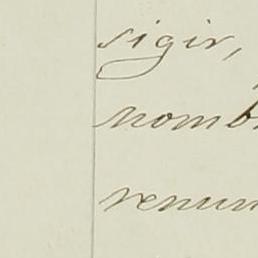 sigir,
nomb
renun